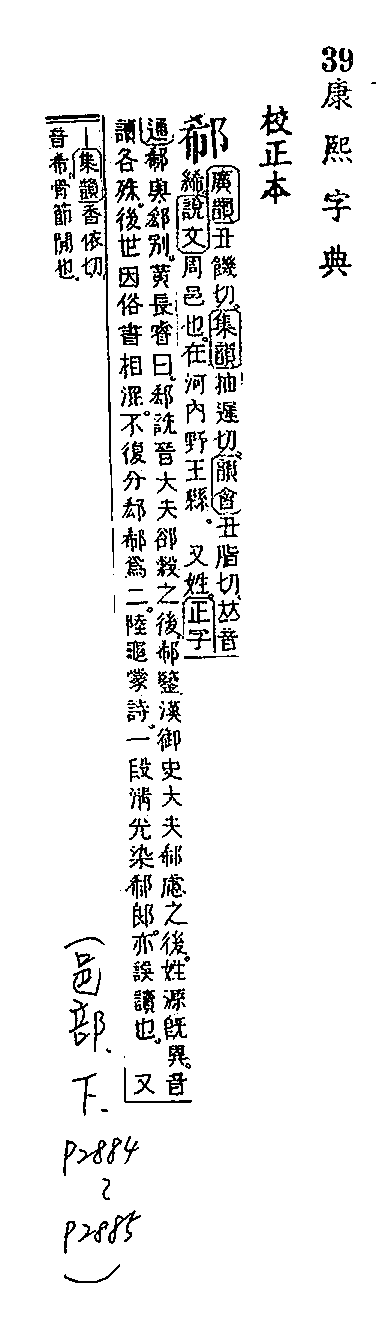 39
康熙字典
校正本
郗
廣韻丑饑切。集韻抽遲切。韻會丑脂切。𠀤音
絺。說文周邑也。在河內野王縣。 又姓。正字
通郗與郄別。黃長睿曰。郄詵晉大夫郤縠之後。郗鑒漢御史大夫郗慮之後。姓源旣異。音
讀各殊。後世因俗書相溷。不復分郄郗爲二。陸龜蒙詩。一段淸光染郗郞。亦誤讀也。 又
集韻香依切
音希。骨節閒也。
(邑部、下、P2884~P2885)